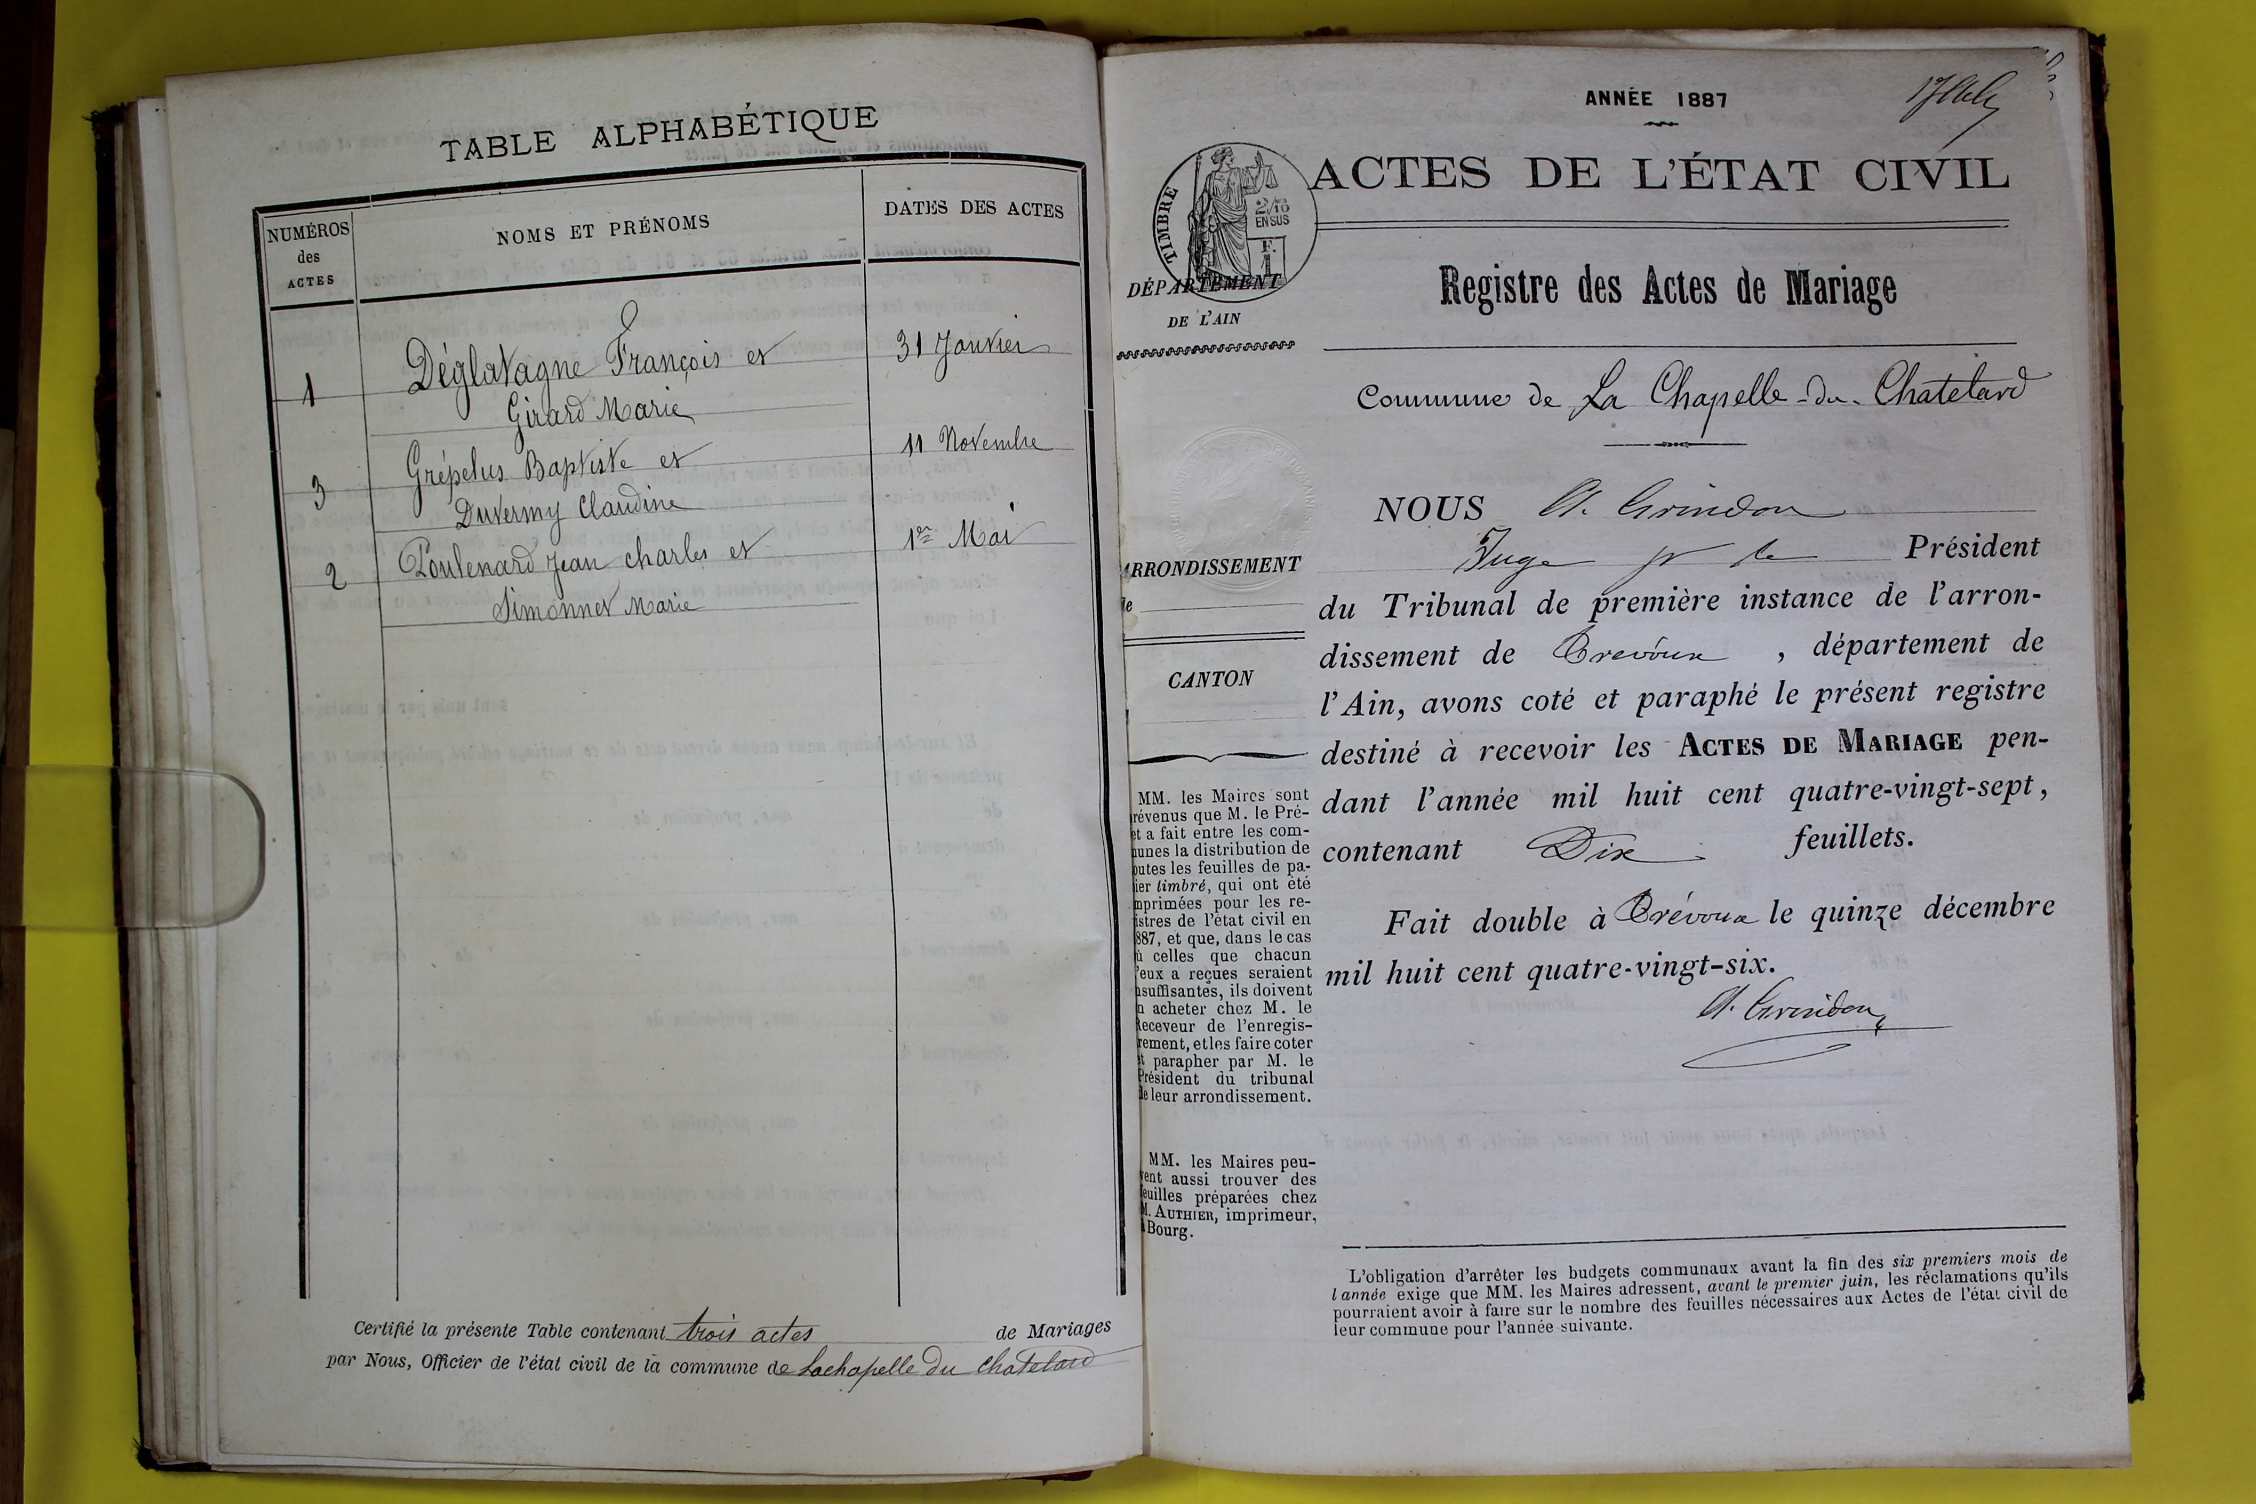 TABLE ALPHABÉTIQUE
NUMÉROS des ACTES
NOMS ET PRÉNOMS
DATES DES ACTES
1 Déglavagne François et 31 Janvier
Girard Marie
3 Grépelus Baptiste et 11 Novembre
Duvermy Claudine
2 Poulenard Jean Charles et 1er Mai
Simonnet Marie
Certifié la présente Table contenant trois actes de Mariages
par Nous, Officier de l'état civil de la commune de Lachapelle du Chatelard
ANNÉE 1887
ACTES DE L'ÉTAT CIVIL
TIMBRE
2/10
EN SUS
F.
1
DÉPARTEMENT
DE L'AIN
Registre des Actes de Mariage
Commune de La Chapelle-du-Chatelard
NOUS A. Grindon
Juge pr le Président
du Tribunal de première instance de l'arron-
dissement de Trevoux, département de
l'Ain, avons coté et paraphé le présent registre
destiné à recevoir les ACTES DE MARIAGE pen-
dant l'année mil huit cent quatre-vingt-sept,
contenant Dix feuillets.
Fait double à Trévoux le quinze décembre
mil huit cent quatre-vingt-six.
A. Grindon
ARRONDISSEMENT
de
CANTON
MM. les Maires sont
révenus que M. le Pré-
et a fait entre les com-
unes la distribution de
outes les feuilles de pa-
ier timbré, qui ont été
mprimées pour les re-
istres de l'état civil en
887, et que, dans le cas
ù celles que chacun
'eux a reçues seraient
nsuffisantes, ils doivent
n acheter chez M. le
Receveur de l'enregis-
rement, et les faire coter
et parapher par M. le
Président du tribunal
de leur arrondissement.
MM. les Maires peu-
vent aussi trouver des
feuilles préparées chez
M. AUTHIER, imprimeur,
à Bourg.
L'obligation d'arrêter les budgets communaux avant la fin des six premiers mois de
l'année exige que MM. les Maires adressent, avant le premier juin, les réclamations qu'ils
pourraient avoir à faire sur le nombre des feuilles nécessaires aux Actes de l'état civil de
leur commune pour l'année suivante.